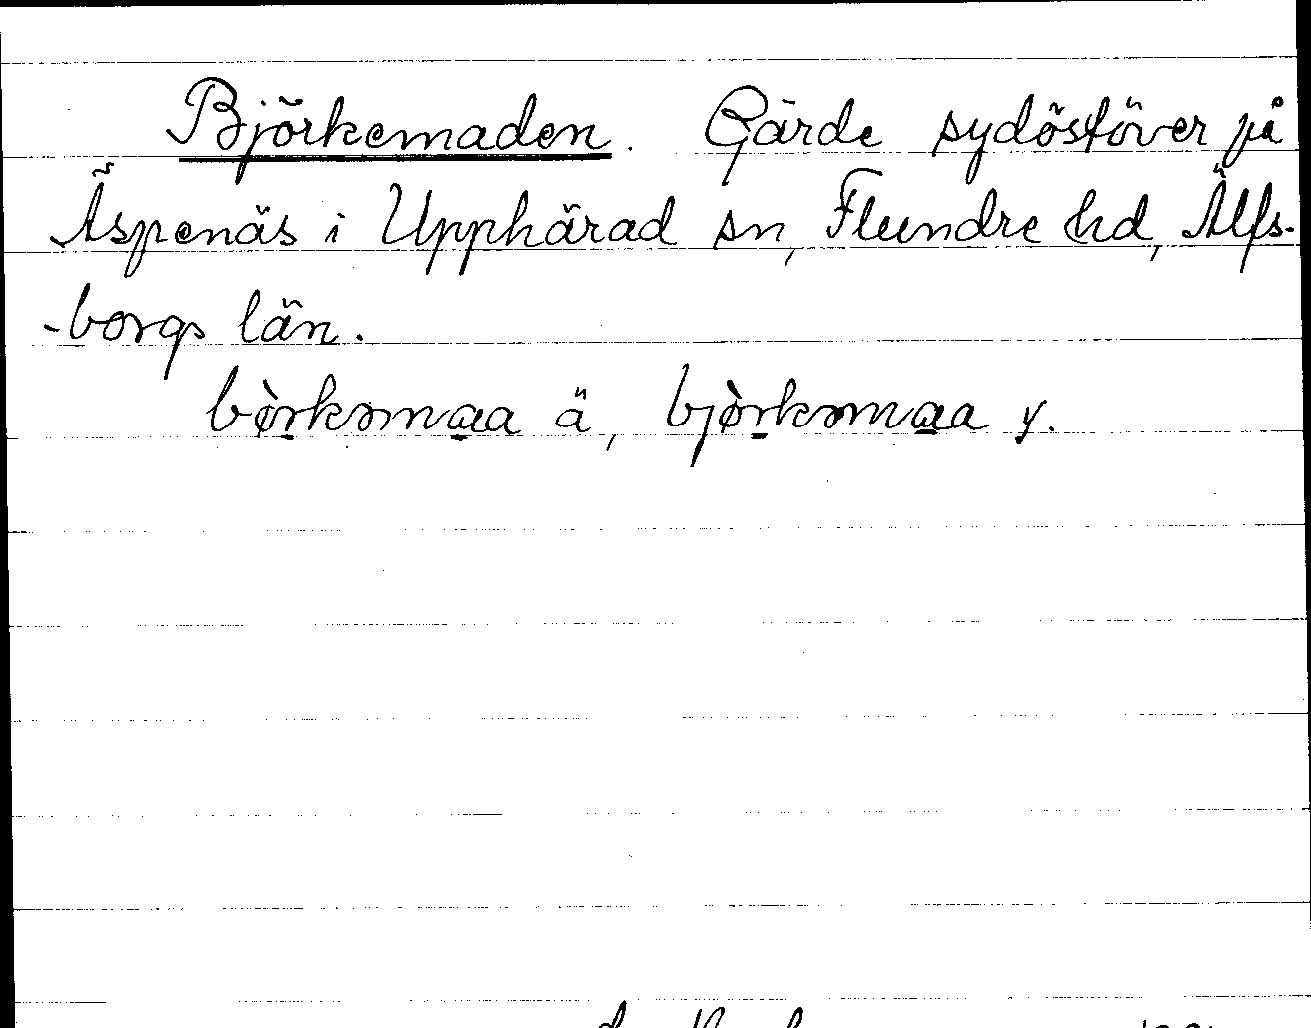 Björkemaden. Gärde sydöstöver på
Äspenäs i Upphärad sn, Flundre hd, Älfs-
-borgs län.
bòrkəmaa ä, bjòrkəmaa y.